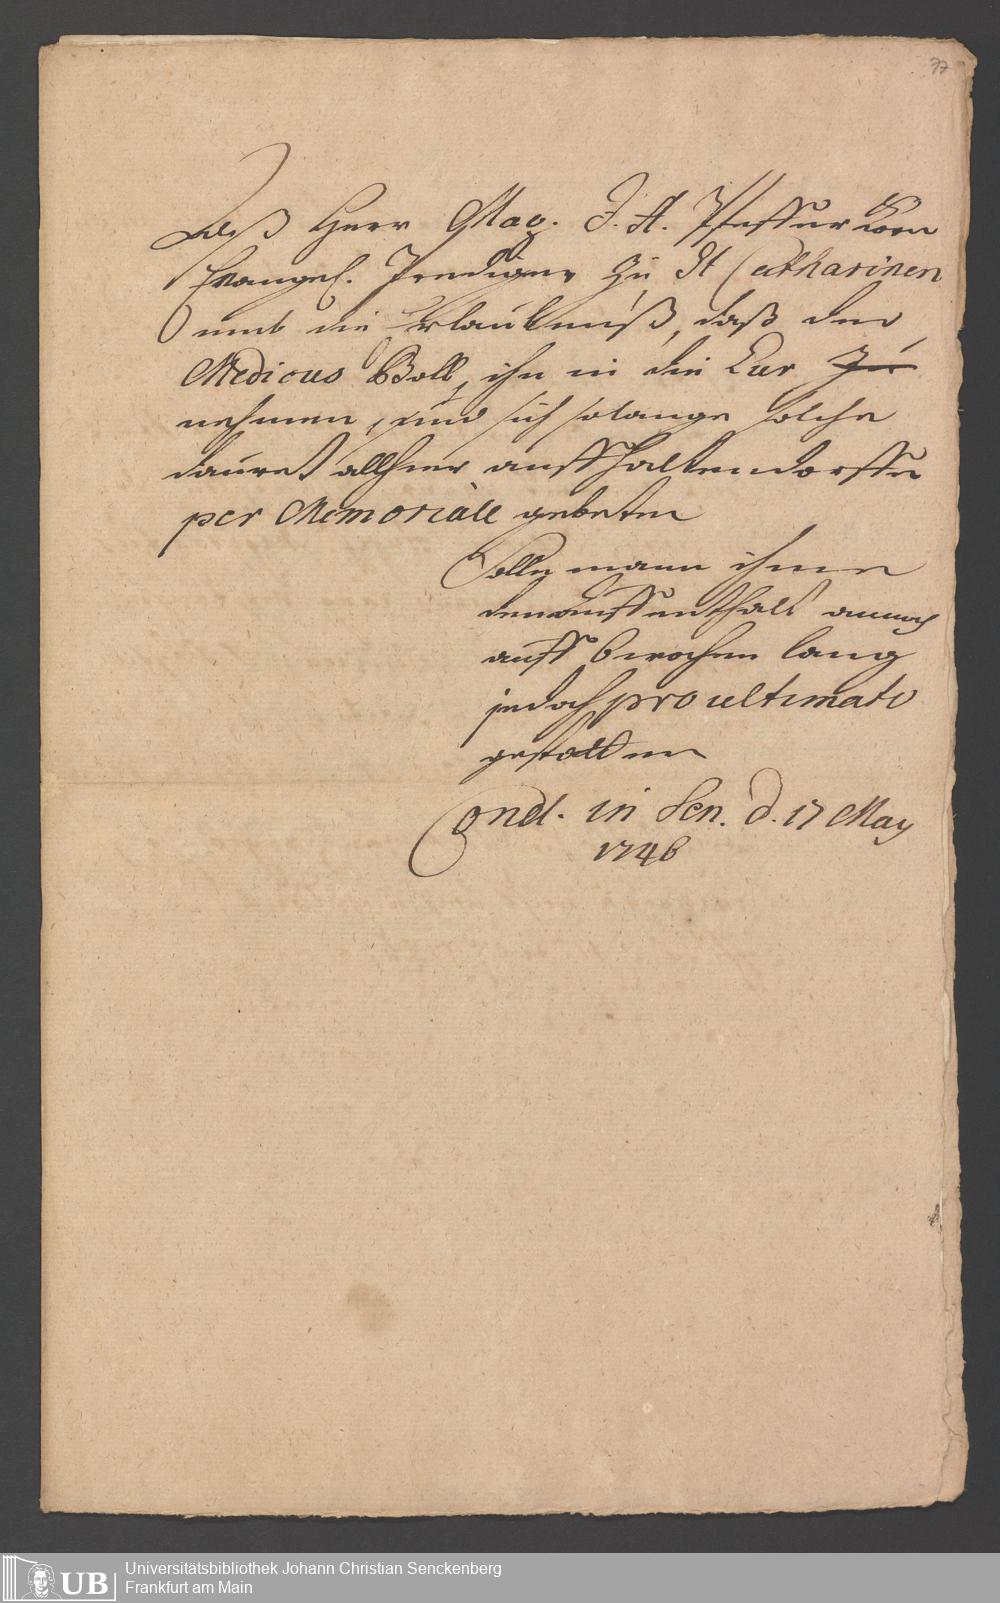 77
Alß Herr Mag. J. A. Pfeffer
Evangel. Prediger zu St Catharinen
umb die Erlaubniß, daß der
Medicus Boll, ihn in die Cur zu
nehmen, und sich solange solche
dauret allhier auffhalten dorffte
per Memoriale gebeten
Solle mann ihme
den Auffenthalt annoch
auff 6 wochen lang
jedoch pro ultimato
gestatten
Concl. in Sen. d. 17 May
1746
UB
Universitätsbibliothek Johann Christian Senckenberg
Frankfurt am Main